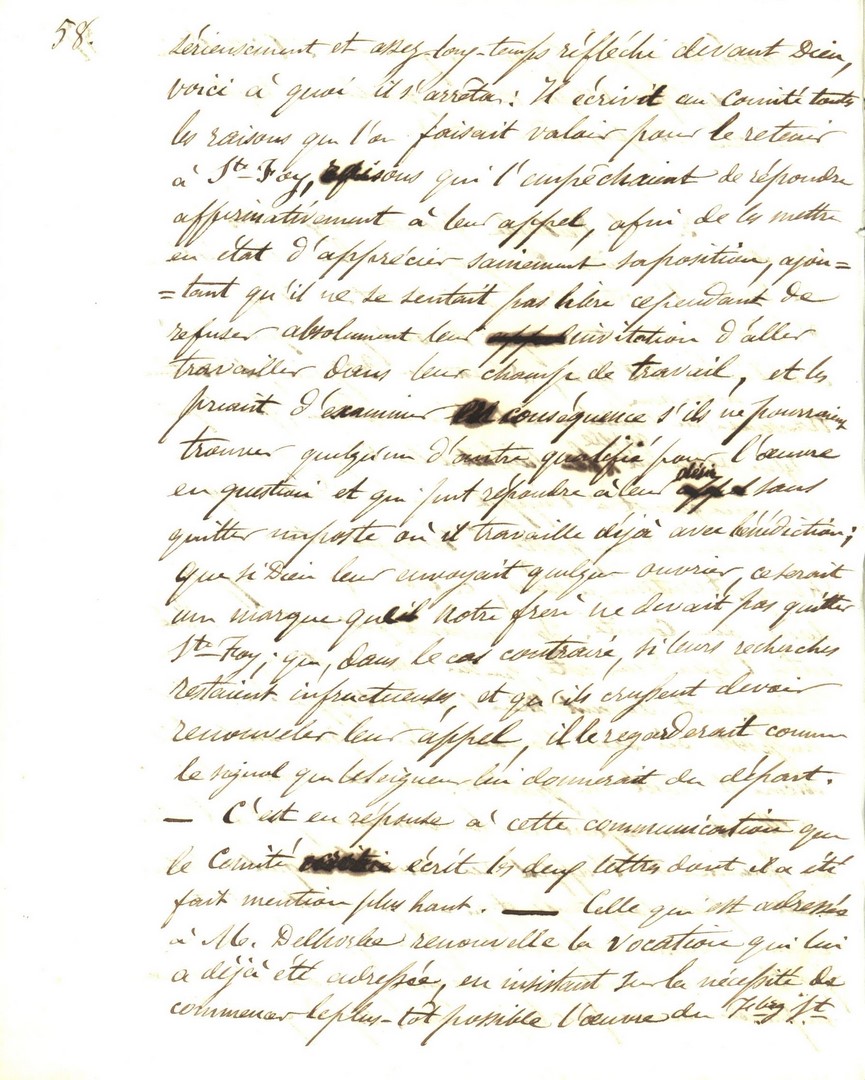 58.
sérieusement et assez long-temps réfléchi devant Dieu,
voici à quoi il s'arrêta: Il écrivit au Comité toutes
les raisons que l'on faisait valoir pour le retenir
à Ste Foy, raisons qui l'empêchaient de répondre
affirmativement à leur appel, afin de les mettre
en état d'apprécier sainement sa position, ajou=
=tant qu'il ne se sentait pas libre cependant de
refuser absolument leur invitation d'aller
travailler dans leur champ de travail, et les
priant d'examiner en conséquence s'ils ne pourraient
trouver quelqu'un d'autre qualifié pour l'œuvre
en question et qui put répondre à leur désir sans
quitter un poste où il travaille déjà avec bénédiction;
que si Dieu leur envoyait quelque ouvrier, ce serait
une marque que notre frère ne devait pas quitter
Ste Foy; que, dans le cas contraire, si leurs recherches
restaient infructueuses, et qu'ils crussent devoir
renouveler leur appel, il le regarderait comme
le signal que le Seigneur lui donnerait du départ.
— C'est en réponse à cette communication que
le Comité écrit les deux lettres dont il a été
fait mention plus haut. — Celle qui est adressée
à M. Delhorbe renouvelle la vocation qui lui
a déjà été adressée, en insistant sur la nécessité de
commencer le plus-tôt possible l'œuvre du